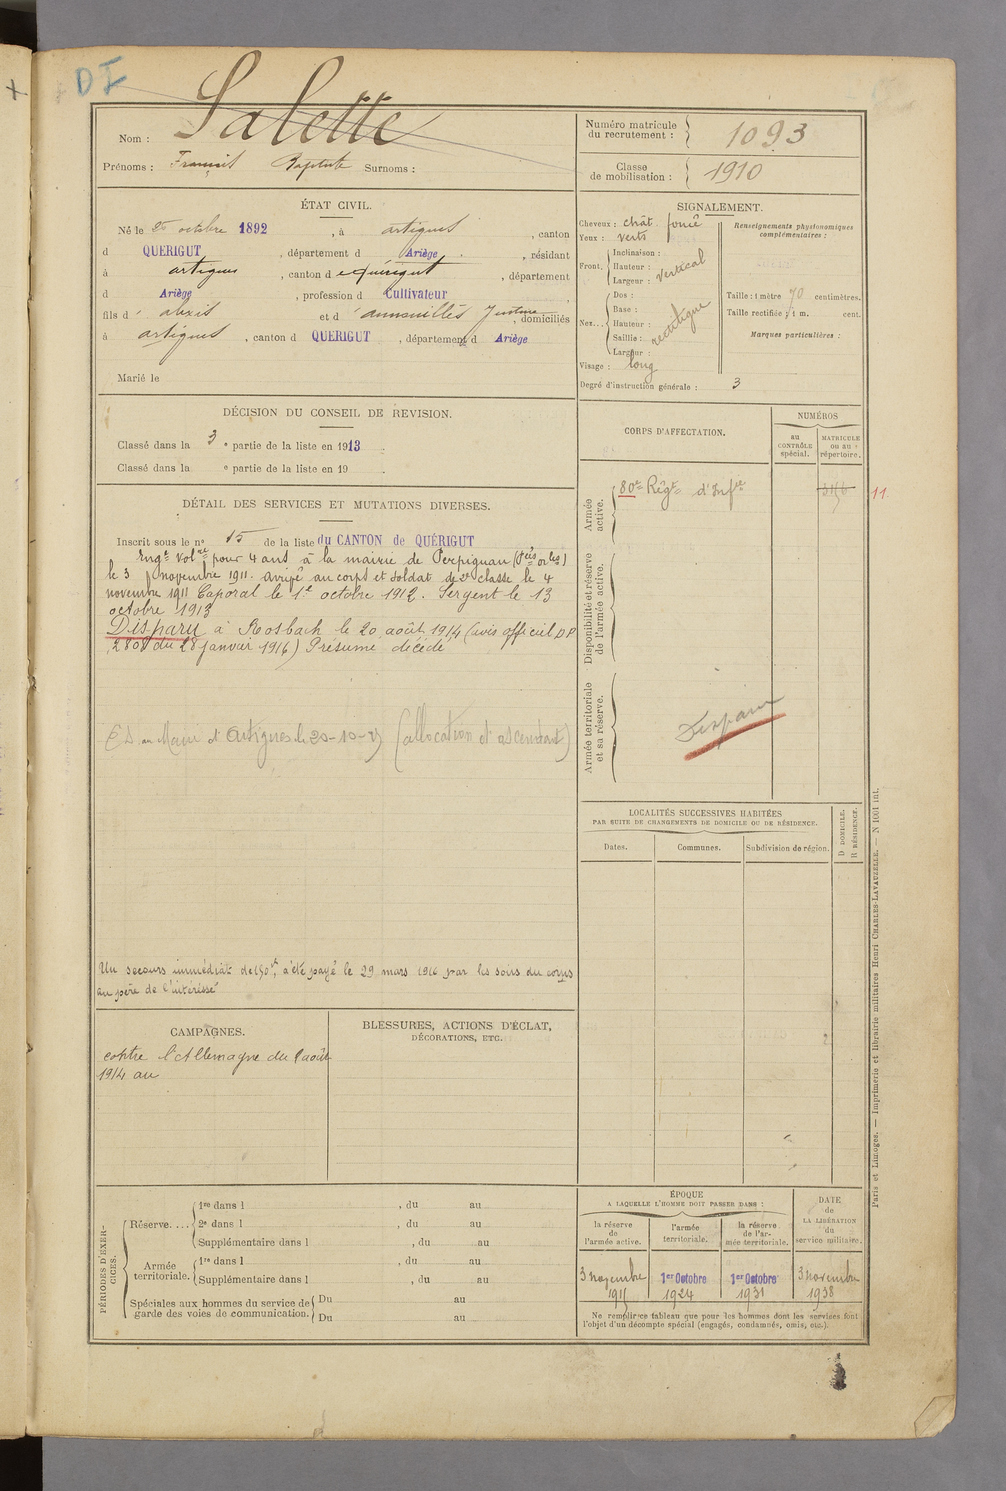 DI
Nom : Salette
Prénoms : François Baptiste Surnoms :
Numéro matricule du recrutement : 1093
Classe de mobilisation : 1910
ÉTAT CIVIL.
Né le octobre 1892, à artigues, canton
d QUERIGUT, département d Ariège, résidant
à artigues, canton de Quérigut, département
d Ariège, profession d Cultivateur
fils d' alexis et d' Justine, domiciliés
à artigues, canton d QUERIGUT, département d Ariège
Marié le
SIGNALEMENT.
Cheveux : chât. foncé
Yeux : verts
Front. Inclinaison :
Hauteur : vertical
Largeur :
Nez... Dos :
Base :
Hauteur : rectiligne
Saillie :
Largeur :
Visage : long
Renseignements physionomiques complémentaires :
Taille : 1 mètre 70 centimètres.
Taille rectifiée : 1 m. cent.
Marques particulières :
Degré d'instruction générale : 3
DÉCISION DU CONSEIL DE REVISION.
Classé dans la 3e partie de la liste en 1913
Classé dans la e partie de la liste en 19
DÉTAIL DES SERVICES ET MUTATIONS DIVERSES.
Inscrit sous le n° 15 de la liste du CANTON de QUÉRIGUT
Engé volre pour 4 ans à la mairie de Perpignan (Pées Orles)
le 3 novembre 1911. Arrivé au corps et soldat de 2e classe le 4
novembre 1911 Caporal le 1er octobre 1912. Sergent le 13
octobre 1913
Disparu à Rosbach le 20 août 1914 (avis officiel DP
2808 du 28 janvier 1916) Présumé décédé
au Maire d'Artigues le 20-10- (allocation d'ascendant)
Un secours immédiat de 150f, a été payé le 29 mars 1916 par les soins du corps
au père de l'intéressé
CORPS D'AFFECTATION.
NUMÉROS
au CONTRÔLE spécial.
MATRICULE ou au répertoire.
Armée active.
80e Régt d'Infrie
11
Disponibilité et réserve de l'armée active.
Armée territoriale et sa réserve.
Disparu
LOCALITÉS SUCCESSIVES HABITÉES
PAR SUITE DE CHANGEMENTS DE DOMICILE OU DE RÉSIDENCE.
Dates.
Communes.
Subdivision de région.
D DOMICILE.
R RÉSIDENCE.
CAMPAGNES.
contre l'Allemagne du 2 août
1914 au
BLESSURES, ACTIONS D'ÉCLAT,
DÉCORATIONS, ETC.
PÉRIODES D'EXERCICES.
Réserve.... 1re dans l , du au
2e dans l , du au
Supplémentaire dans l , du au
Armée territoriale. 1re dans l , du au
Supplémentaire dans l , du au
Spéciales aux hommes du service de garde des voies de communication. Du au
Du au
ÉPOQUE
A LAQUELLE L'HOMME DOIT PASSER DANS :
la réserve de l'armée active.
l'armée territoriale.
la réserve de l'armée territoriale.
DATE de LA LIBÉRATION du service militaire.
3 novembre 1915
1er Octobre 1924
1er Octobre 1931
3 novembre 1938
Ne remplir ce tableau que pour les hommes dont les services font
l'objet d'un décompte spécial (engagés, condamnés, omis, etc.).
Paris et Limoges. — Imprimerie et librairie militaires Henri CHARLES-LAVAUZELLE. — N 1001 int.